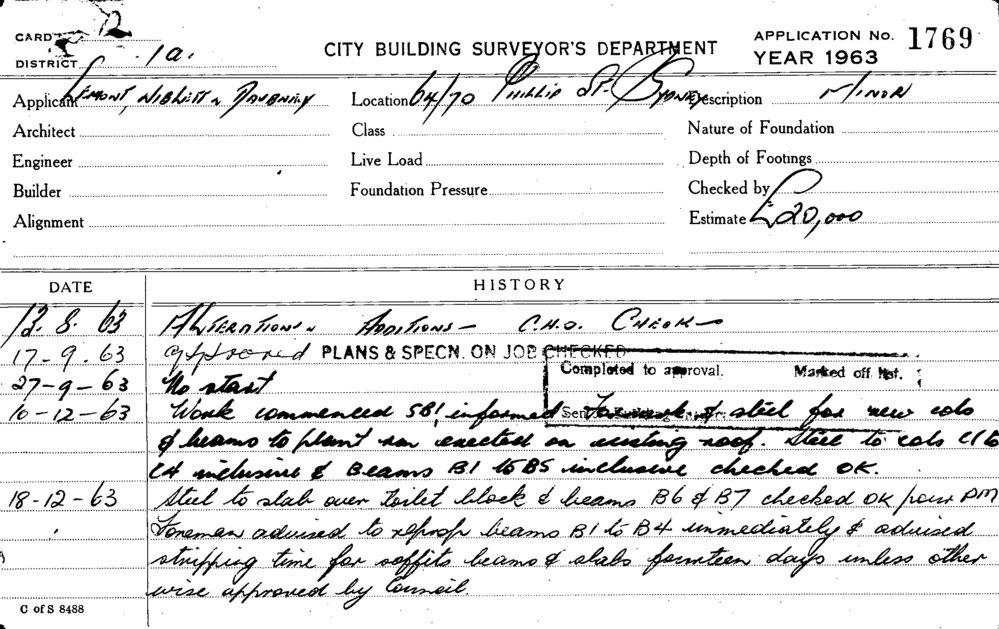 CARD 2
DISTRICT 1a.
CITY BUILDING SURVEYOR'S DEPARTMENT
APPLICATION No. 1769
YEAR 1963
Applicant
Location 64/70 Phillip St. Sydney
Description Minor
Architect
Class
Nature of Foundation
Engineer
Live Load
Depth of Footings
Builder
Foundation Pressure
Checked by
Alignment
Estimate £20,000
DATE HISTORY
13.8.63 Alterations & Additions — C.H.O. Check —
17-9.63 approved PLANS & SPECN. ON JOB CHECKED
Completed to approval. Marked off list.
27-9-63 No start
10-12-63 Work commenced SB1 informed & steel for new cols
& beams to plant rm erected on existing roof. Steel to cols C1 to
C4 inclusive & Beams B1 to B5 inclusive checked OK.
18-12-63 Steel to slab over Toilet block & beams B6 & B7 checked OK pour PM
Foreman advised to reprop beams B1 to B4 immediately & advised
stripping time for soffits beams & slabs fourteen days unless other
wise approved by Council.
C of S 8488